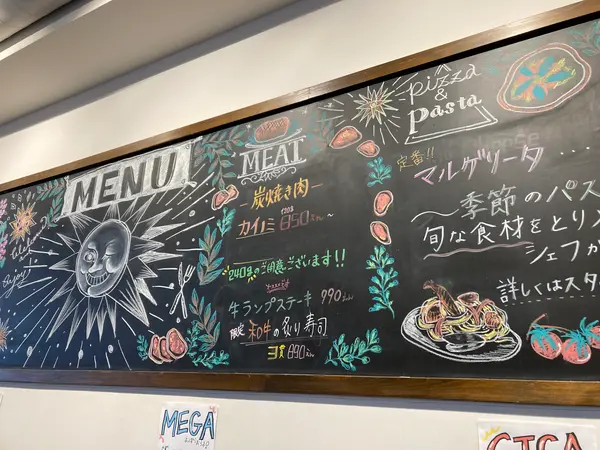 MENU
enjoy!
MEAT
炭焼き肉
カイノミ 850えん~
240gもご用意ございます!!
牛ランプステーキ 990えん
限定 和牛の炙り寿司
890えん
pizza
&
Pasta
定番!! マルゲリータ ...
季節のパス
旬な食材をとり
シェフが
詳しくはスタ
MEGA